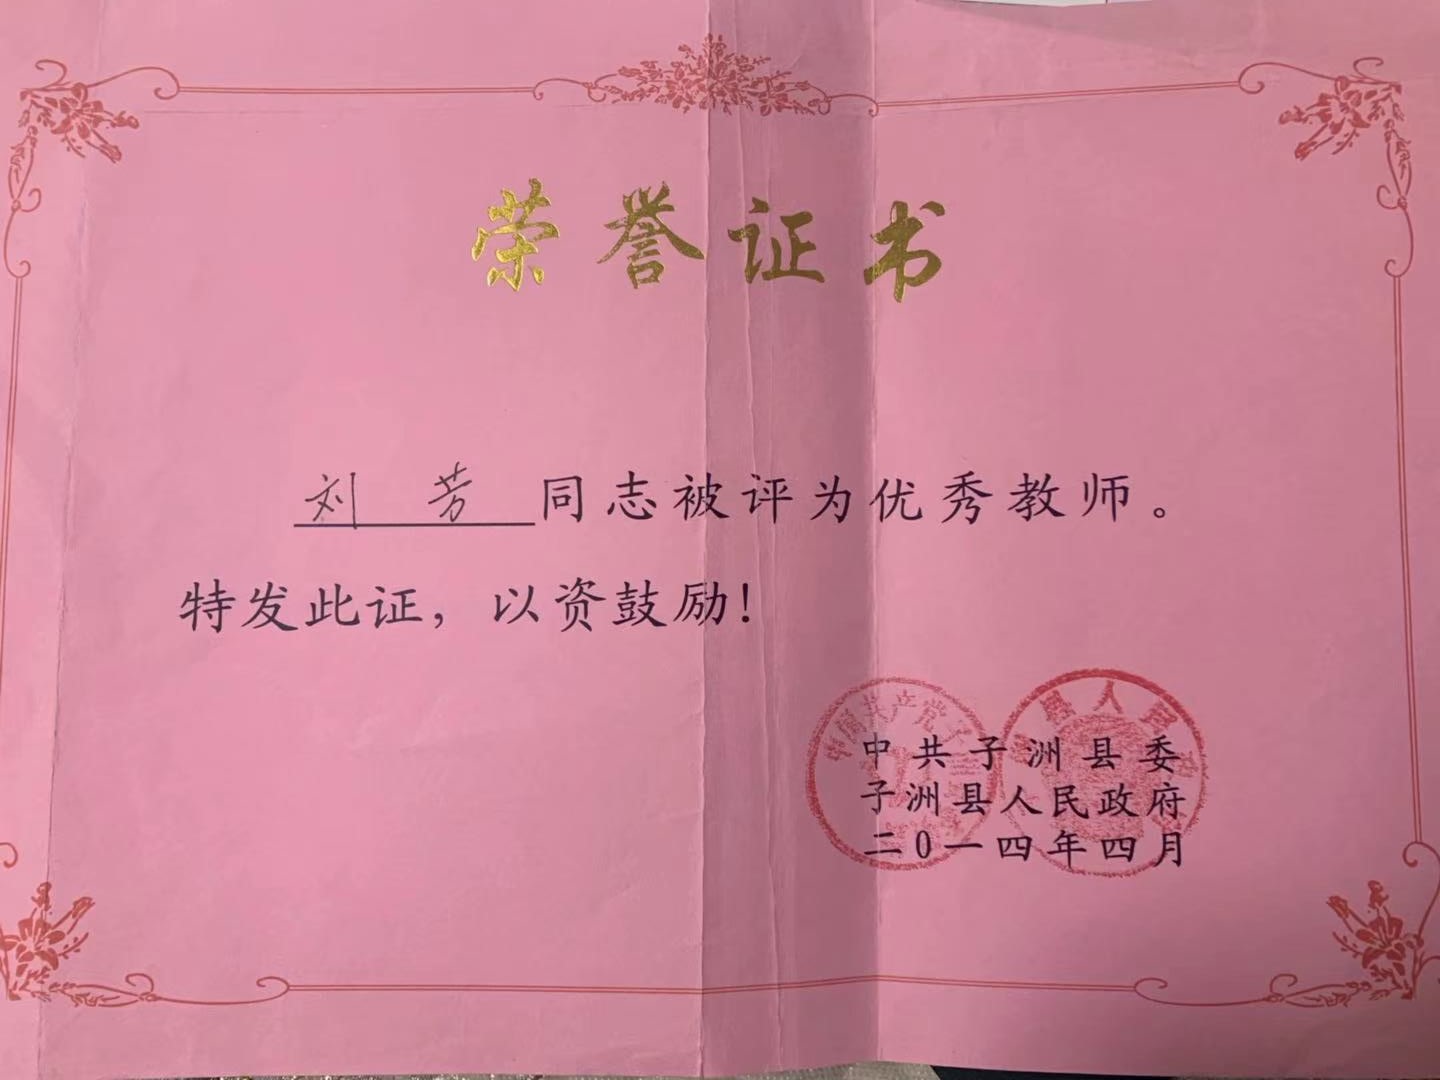 荣誉证书
刘 芳同志被评为优秀教师。
特发此证，以资鼓励！
中共子洲县委
子洲县人民政府
二0一四年四月